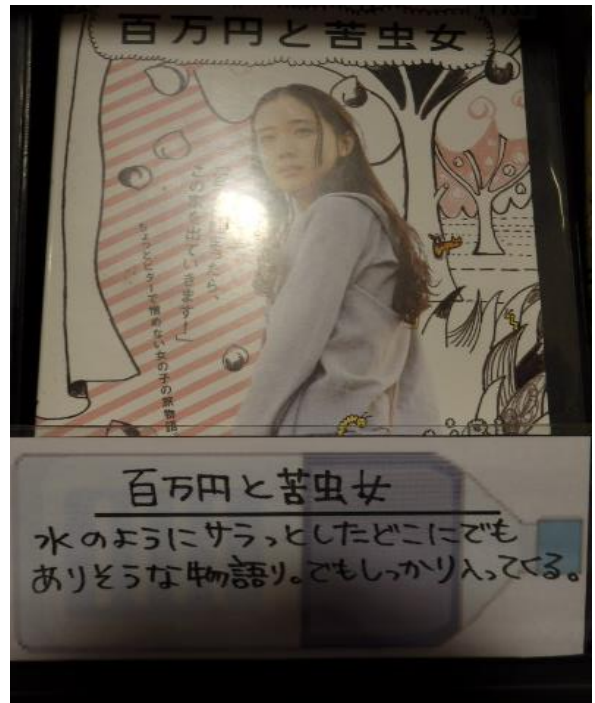 百万円と苦虫女
たら、
この家を出ていきます!」
ちょっとビターで憎めない女の子の旅物語。
百万円と苦虫女
水のようにサラっとしたどこにでも
ありそうな物語り。でもしっかり入ってくる。